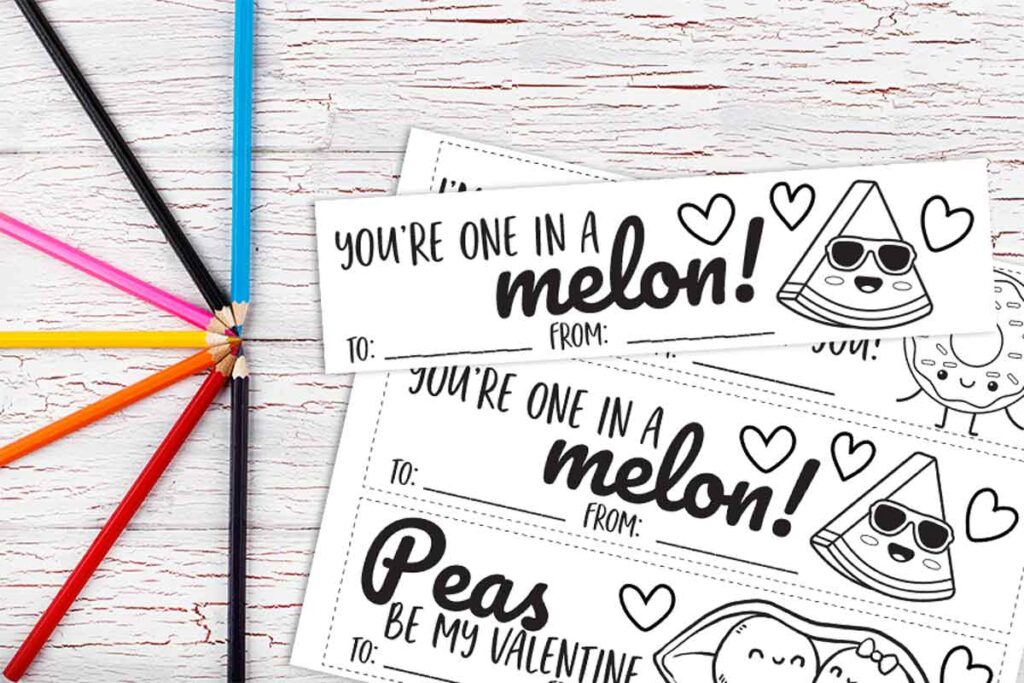 YOU'RE ONE IN A
melon!
TO: FROM:
YOU!
YOU'RE ONE IN A
melon!
TO: FROM:
Peas
BE MY VALENTINE
TO: